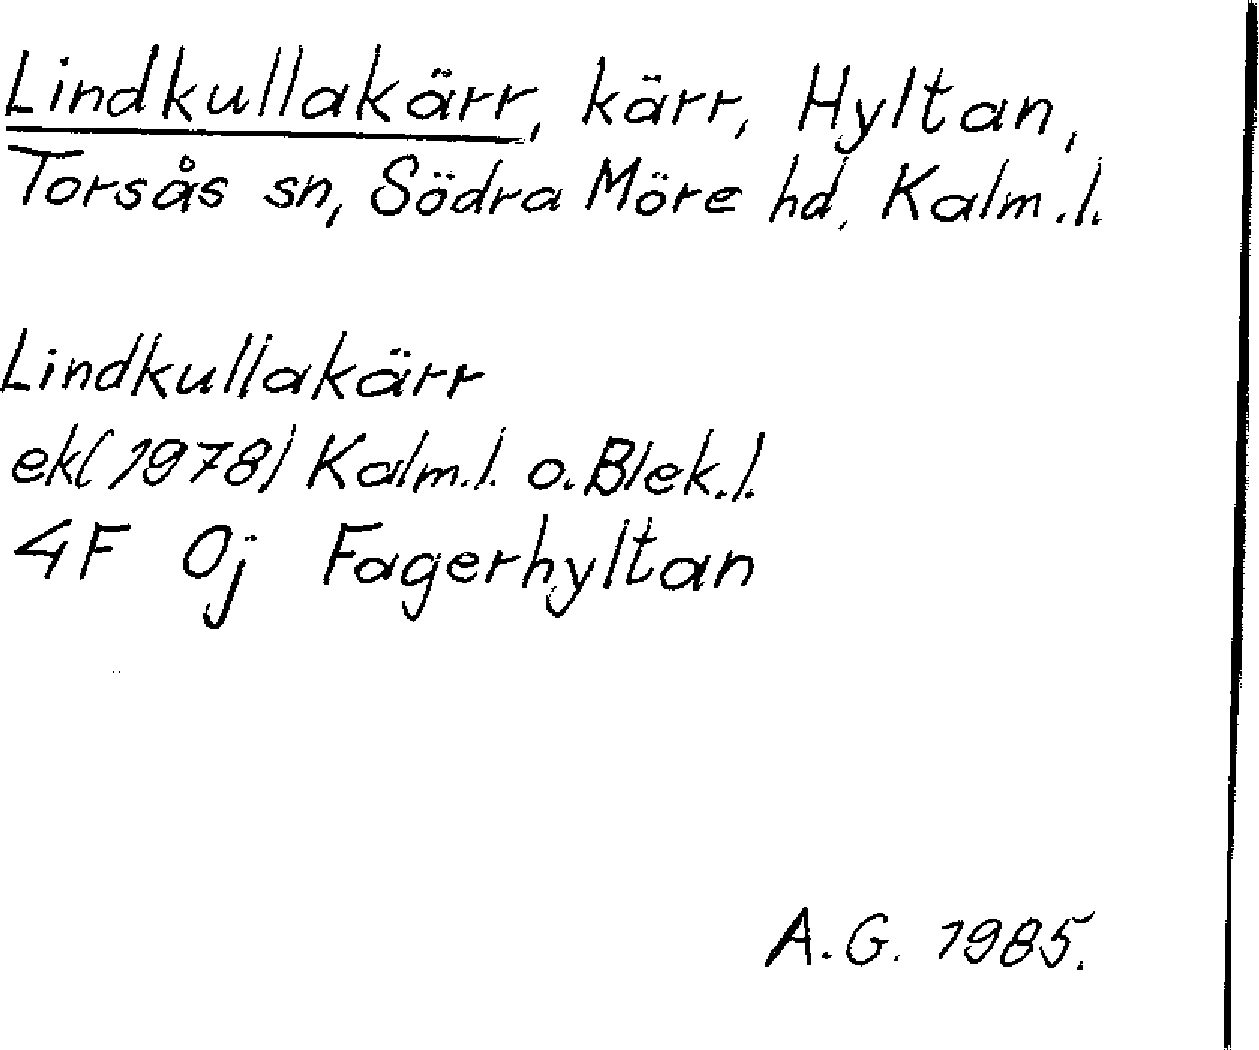 Lindkullakärr, kärr, Hyltan,
Torsås sn, Södra Möre hd, Kalm.l.
Lindkullakärr
ek(1978) Kalm.l. o. Blek.l.
4F 0j Fagerhyltan
A.G. 1985.